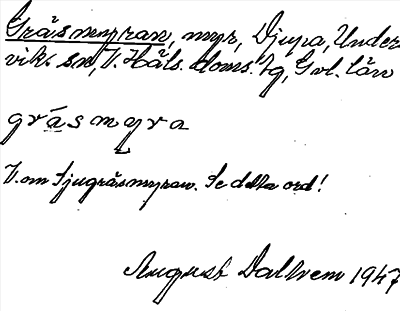 Gräsmyran, myr, Djupa, Under
vik. sn, V. Häls. doms. tg, Gvl. län
gräsmyra
V. om Sjugräsmyran. Se detta ord!
August Dalhvem 1947